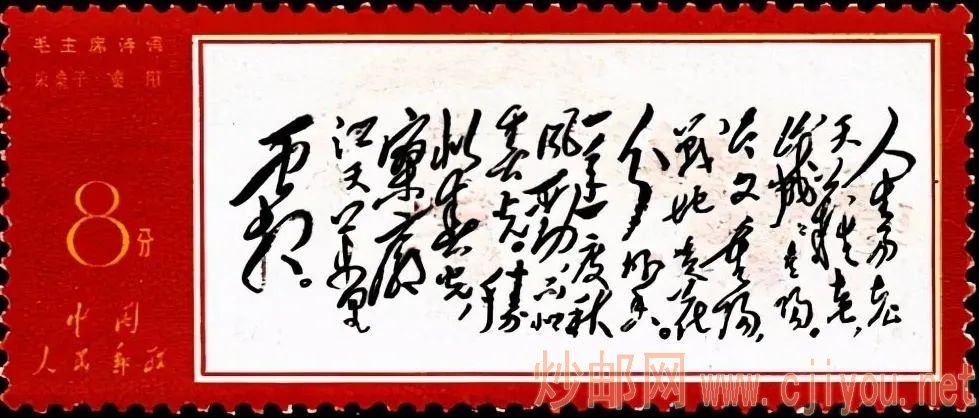 毛主席诗词
采桑子 重阳
8分
中国
人民邮政
人生易老
天難老,
歲歲重陽。
今又重陽,
戰地黄花
分外香。
一年一度秋
風勁,不似
春光。勝
似春光,
寥廓
江天萬里
霜。
炒邮网 www.cjiyou.net